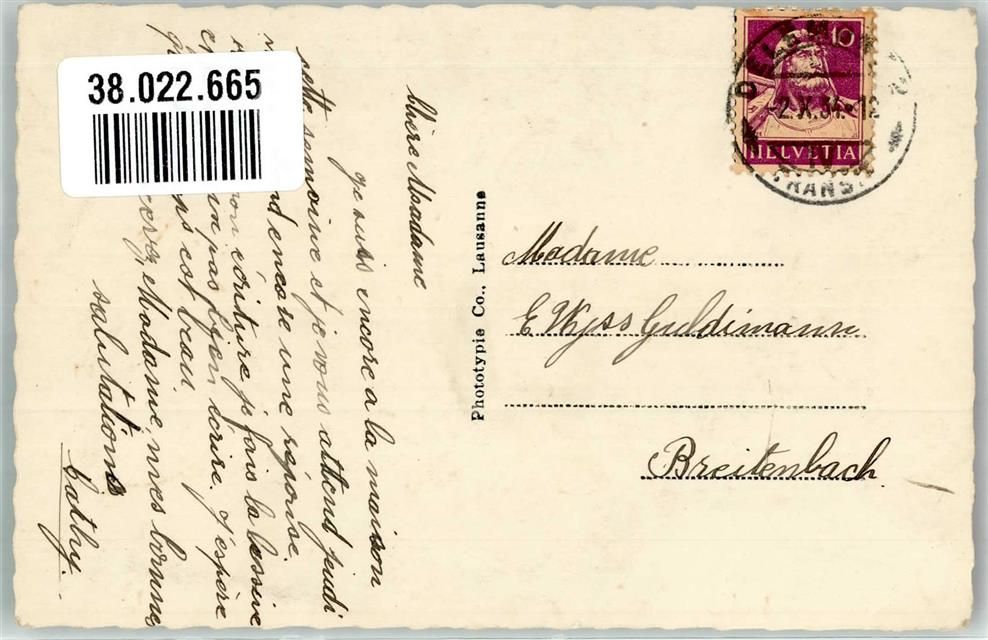 38.022.665
Chère Madame
je suis encore a la maison
cette semaine et je vous attend jeudi
encore une réponse.
écriture je fais la lessive
pas bien écrire. J'espère
est beau.
Madame, mes bonnes
salutations
Cathy.
Phototypie Co., Lausanne
10
HELVETIA
-2.X.34.-12
TRANSIT
Madame
E Wyss Guldimann
Breitenbach